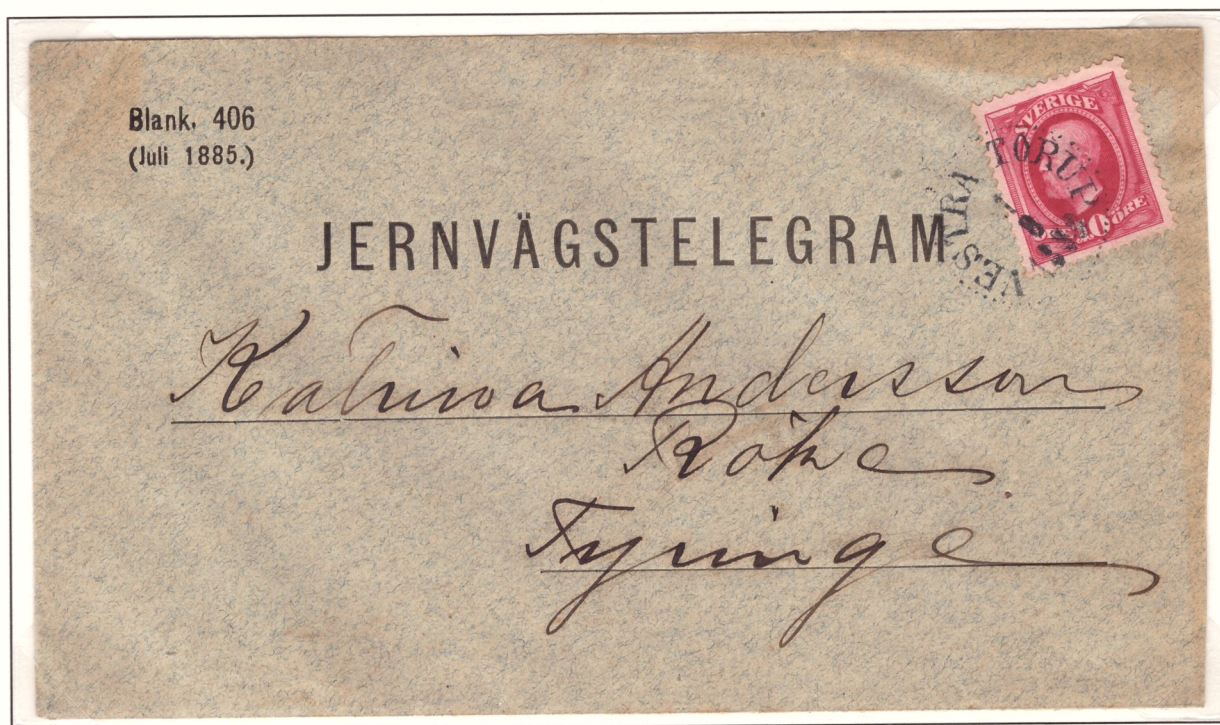 Blank. 406
(Juli 1885.)
SVERIGE
ÖRE
VESTRA TORUP
JERNVÄGSTELEGRAM
Katrina Andersson
Röke
Tyringe